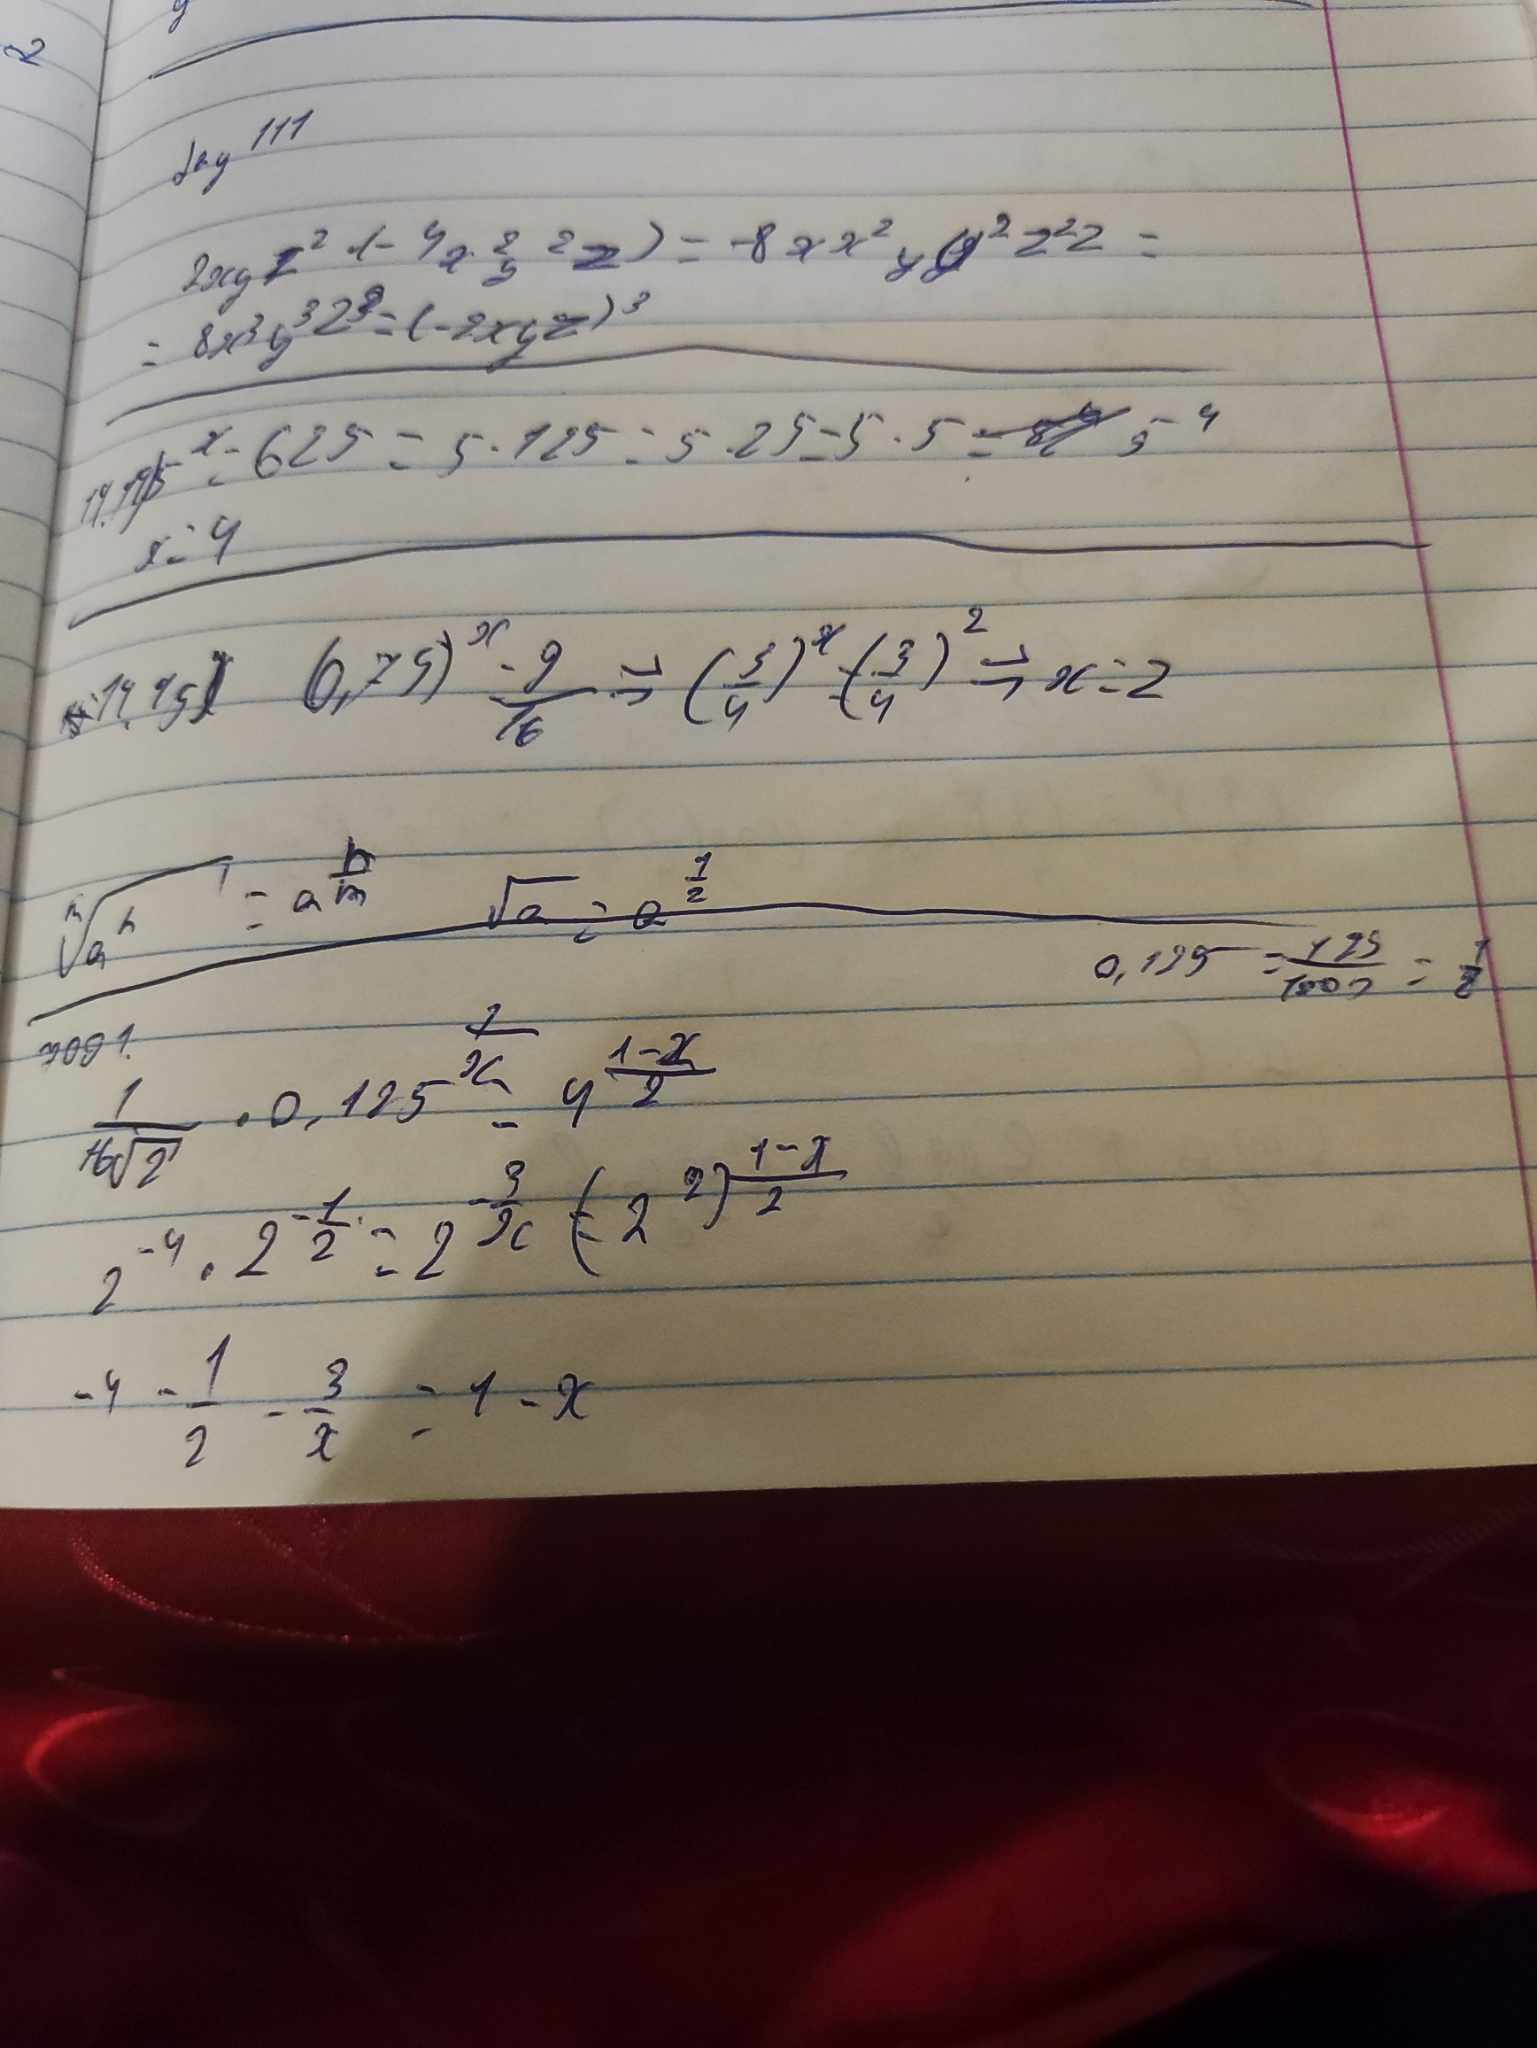 2
111
2xyz² · (-4x²y²z) = -8xx²yy²z²z =
= 8x³y³z³ = (-2xyz)³
5ˣ = 625 = 5·125 = 5·25 = 5·5 = 5⁻⁴
x = 4
(0,75)ˣ = 9/16 => (3/4)ˣ = (3/4)² => x = 2
ᵐ√aⁿ = a^(n/m) √a = a^(1/2)
0,125 = 125/1000 = 1/8
1/(16√2) · 0,125^(1/x) = 4^((1-x)/2)
2⁻⁴ · 2^(-1/2) = 2^(-3/x) = (2²)^((1-x)/2)
-4 - 1/2 - 3/x = 1 - x